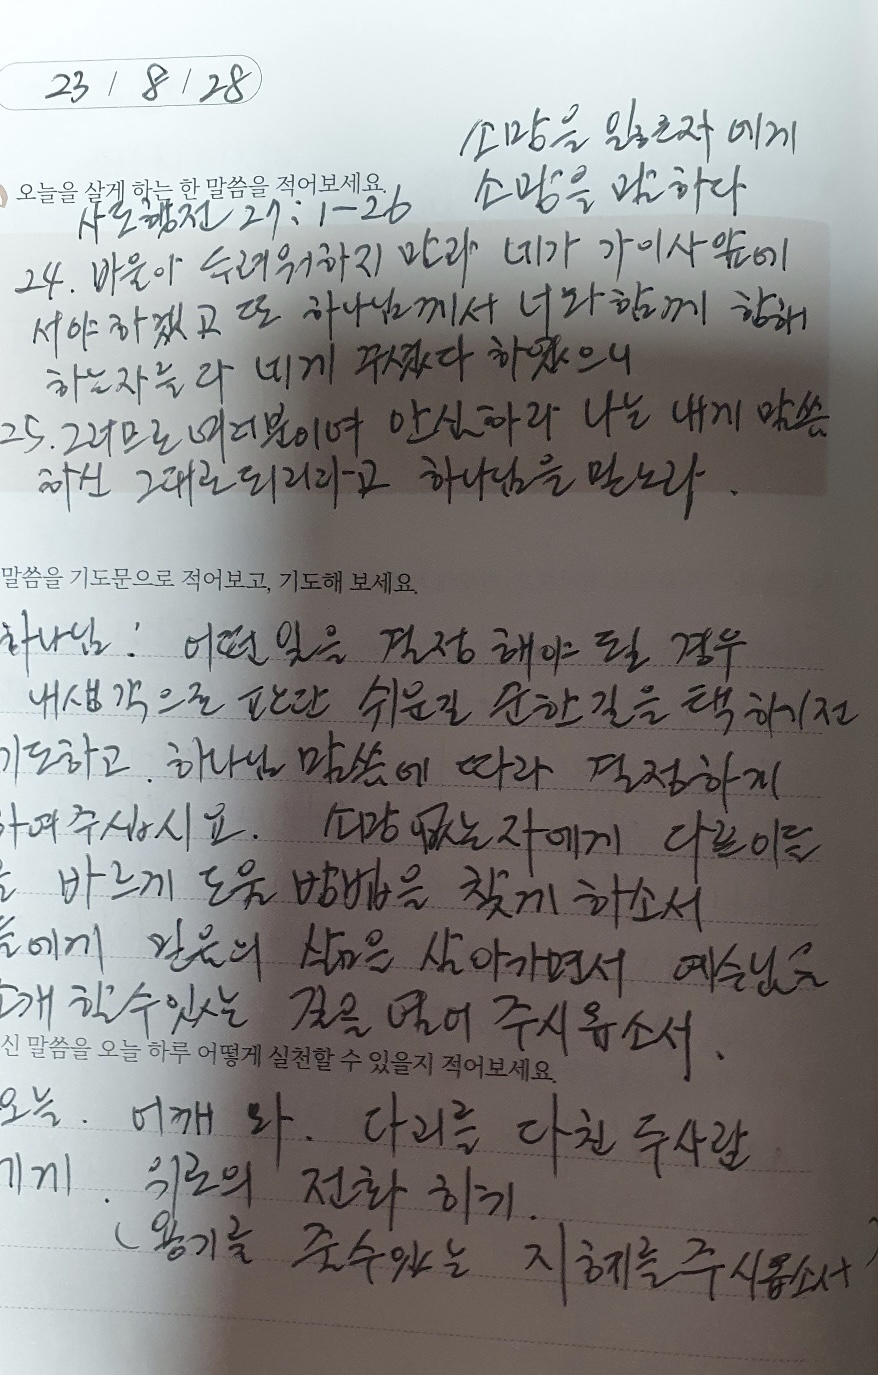 23 / 8 / 28
소망을 잃은자에게
소망을 말하다
오늘을 살게 하는 한 말씀을 적어보세요.
사도행전 27:1-26
24. 바울아 두려워하지 말라 네가 가이사 앞에
서야 하겠고 또 하나님께서 너와 함께 항해
하는자를 다 네게 주셨다 하였으니
25. 그러므로 여러분이여 안심하라 나는 내게 말씀
하신 그대로 되리라고 하나님을 믿노라.
말씀을 기도문으로 적어보고, 기도해 보세요.
하나님: 어떤 일을 결정해야 될 경우
내생각으로 판단 쉬운길 순한길을 택하기전
기도하고. 하나님 말씀에 따라 결정하게
하여주십시요. 소망없는자에게 다른이들
을 바르게 도울 방법을 찾게 하소서
들에게 믿음의 삶을 살아가면서 예수님을
소개 할수있는 길을 열어 주시옵소서.
신 말씀을 오늘 하루 어떻게 실천할 수 있을지 적어보세요.
오늘. 어깨 와. 다리를 다친 두사람
에게. 위로의 전화 하기.
(용기를 줄수있는 지혜를 주시옵소서)